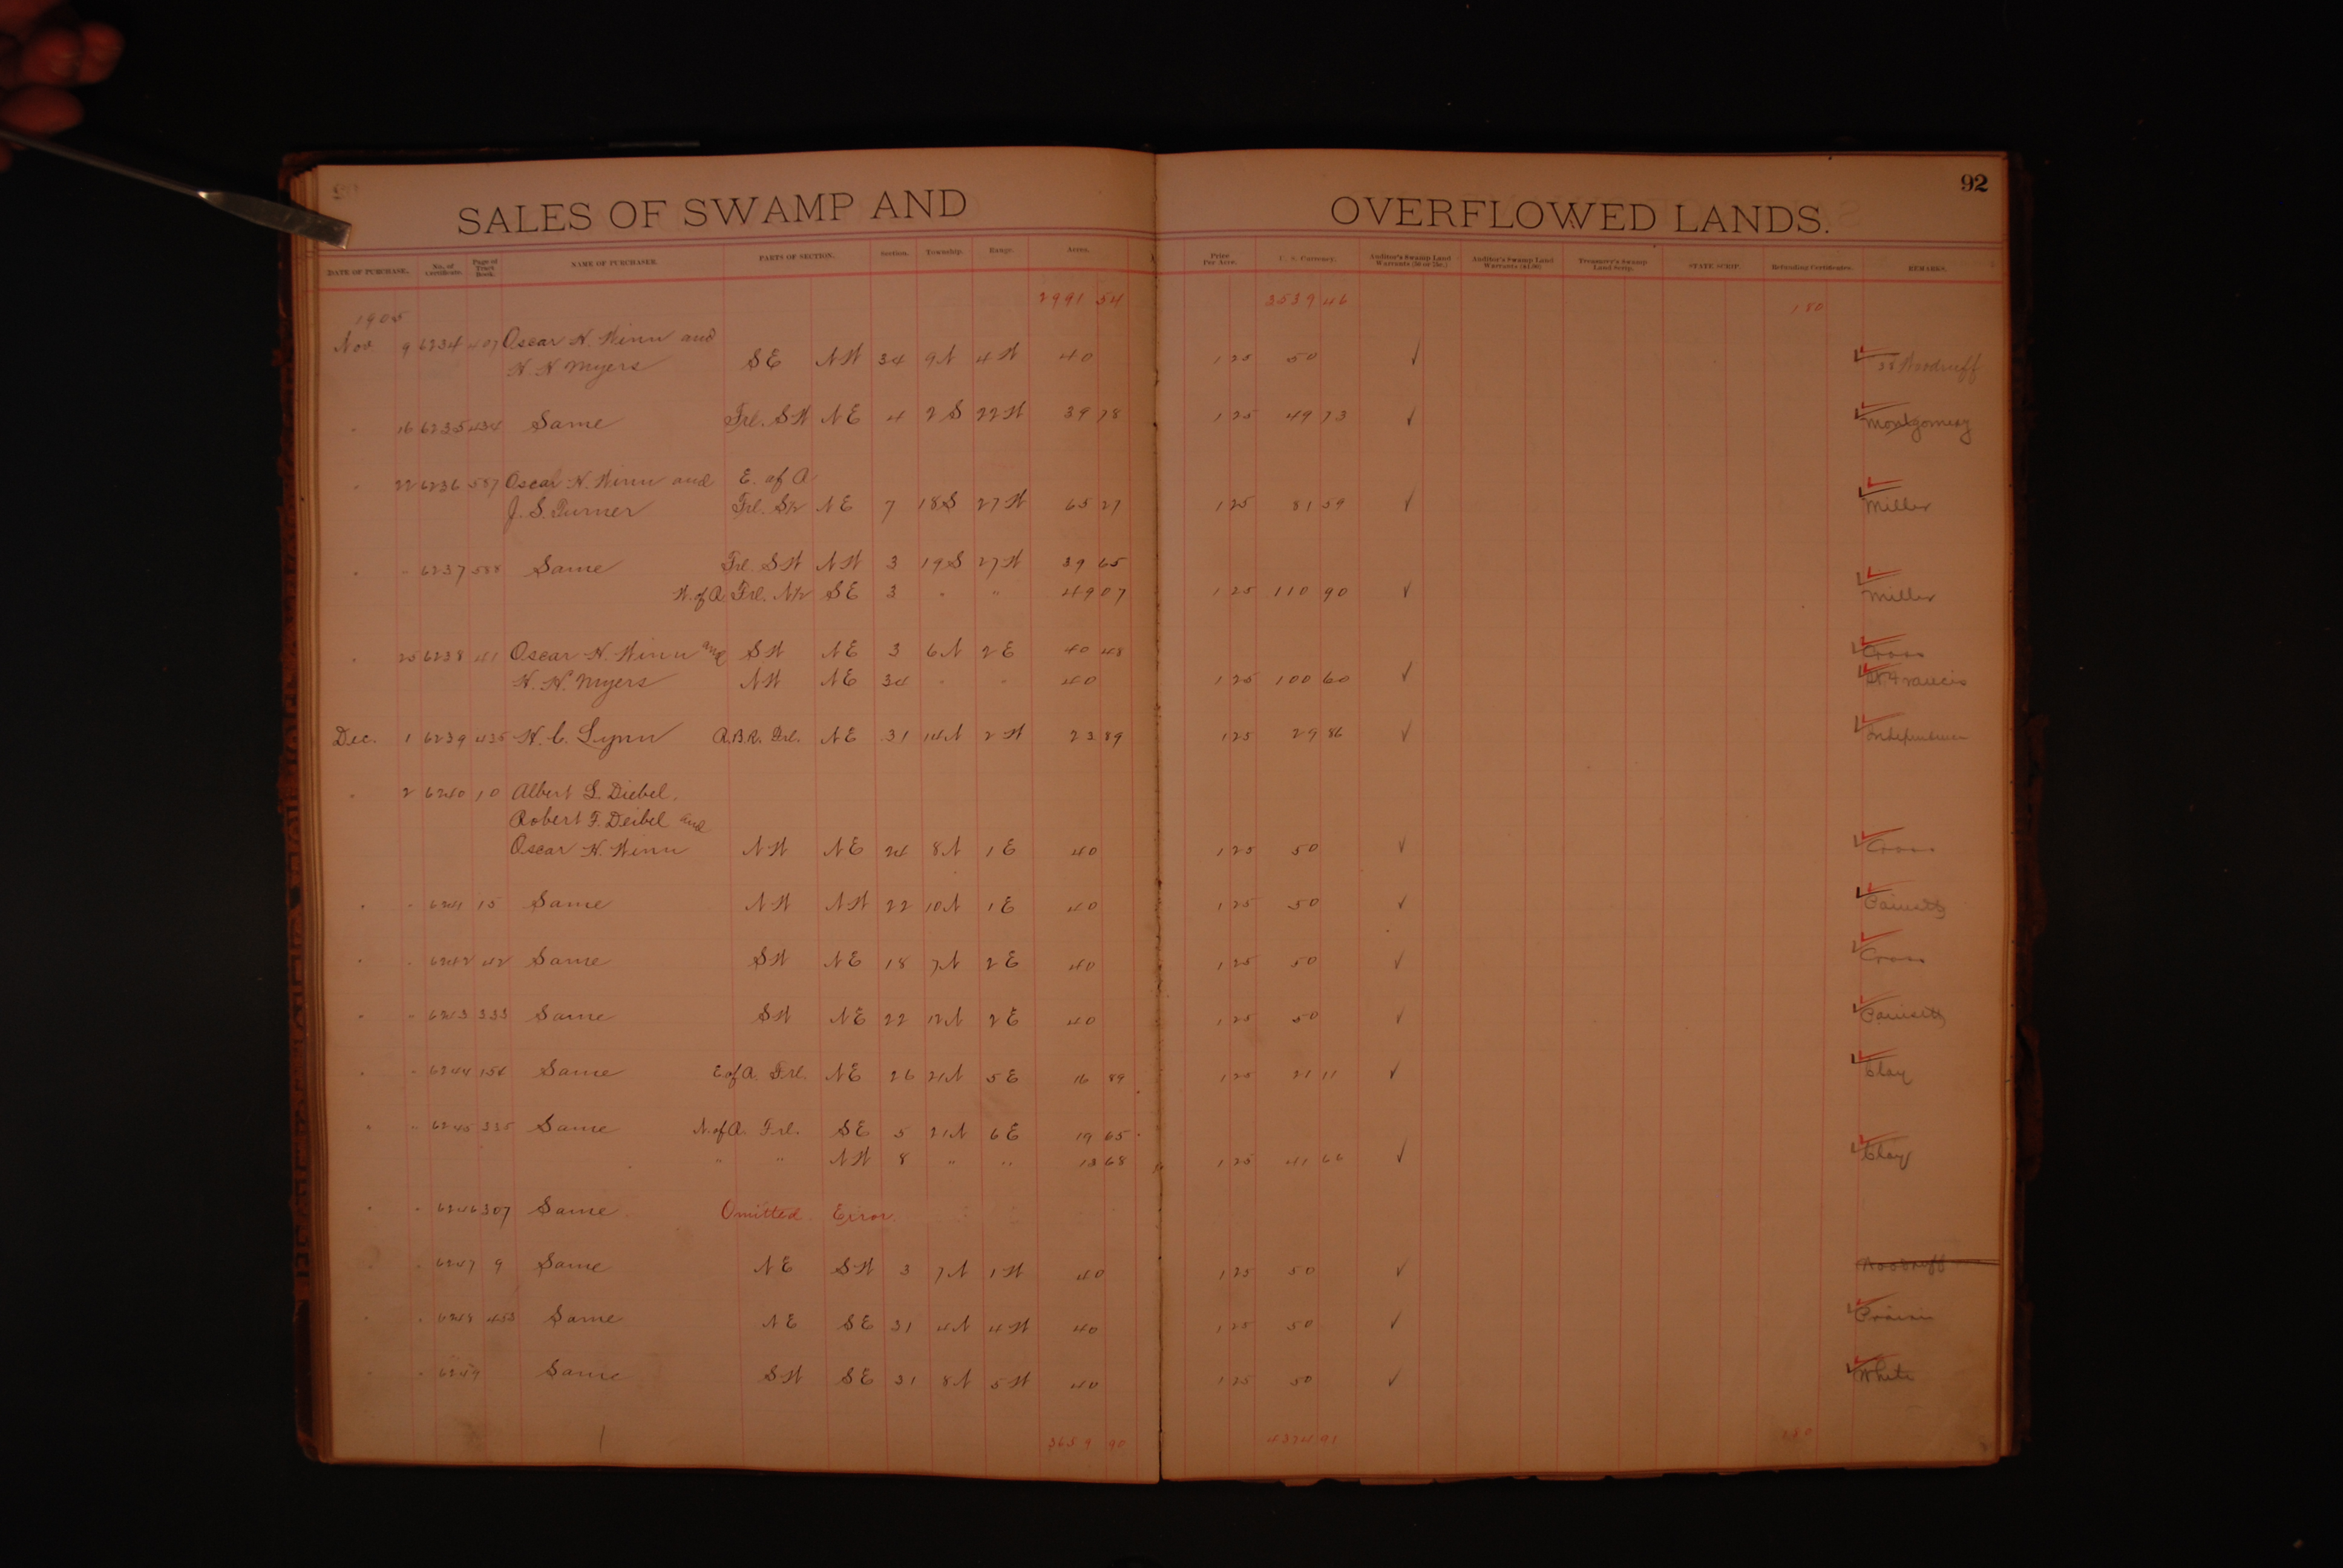 92
SALES OF SWAMP AND OVERFLOWED LANDS.
DATE OF PURCHASE. No. of Certificate. Page of Tract Book. NAME OF PURCHASER. PARTS OF SECTION. Section. Township. Range. Acres. Price Per Acre. U. S. Currency. Auditor's Swamp Land Warrants (50 or 75c.) Auditor's Swamp Land Warrants ($1.00) Treasurer's Swamp Land Scrip. STATE SCRIP. Refunding Certificates. REMARKS.
2991 54 3539 46 180
1905
Nov. 9 6234 407 Oscar H. Winn and
H. H. Myers SE NW 34 9N 4W 40 1 25 50 ✓ Woodruff
" 16 6235 434 Same Frl. SW NE 4 2S 22W 39 78 1 25 49 73 ✓ Montgomery
" 22 6236 587 Oscar H. Winn and E. of R.
J. S. Turner Frl. S½ NE 7 18S 27W 65 27 1 25 81 59 ✓ Miller
" " 6237 588 Same Frl. SW NW 3 19S 27W 39 65
W. of R. Frl. N½ SE 3 " " 49 07 1 25 110 90 ✓ Miller
" 25 6238 41 Oscar H. Winn and SW NE 3 6N 2E 40 48 Cross
H. H. Myers NW NE 34 " " 40 1 25 100 60 ✓ St. Francis
Dec. 1 6239 435 H. C. Lynn R.B.R. Frl. NE 31 14N 2W 23 89 1 25 29 86 ✓ Independence
" 2 6240 10 Albert L. Diebel,
Robert F. Deibel and
Oscar H. Winn NW NE 24 8N 1E 40 1 25 50 ✓ Cross
" " 6241 15 Same NW NW 22 10N 1E 40 1 25 50 ✓ Poinsett
" " 6242 42 Same SW NE 18 7N 2E 40 1 25 50 ✓ Cross
" " 6243 333 Same SW NE 22 12N 2E 40 1 25 50 ✓ Poinsett
" " 6244 156 Same E of R. Frl. NE 26 21N 5E 16 89 1 25 21 11 ✓ Clay
" " 6245 335 Same N. of R. Frl. SE 5 21N 6E 19 65
" " NW 8 " " 13 68 1 25 41 66 ✓ Clay
" " 6246 307 Same Omitted Error
" " 6247 9 Same NE SW 3 7N 1W 40 1 25 50 ✓ Woodruff
" " 6248 453 Same NE SE 31 4N 4W 40 1 25 50 ✓ Prairie
" " 6249 Same SW SE 31 8N 5W 40 1 25 50 ✓ White
3639 90 4324 91 180